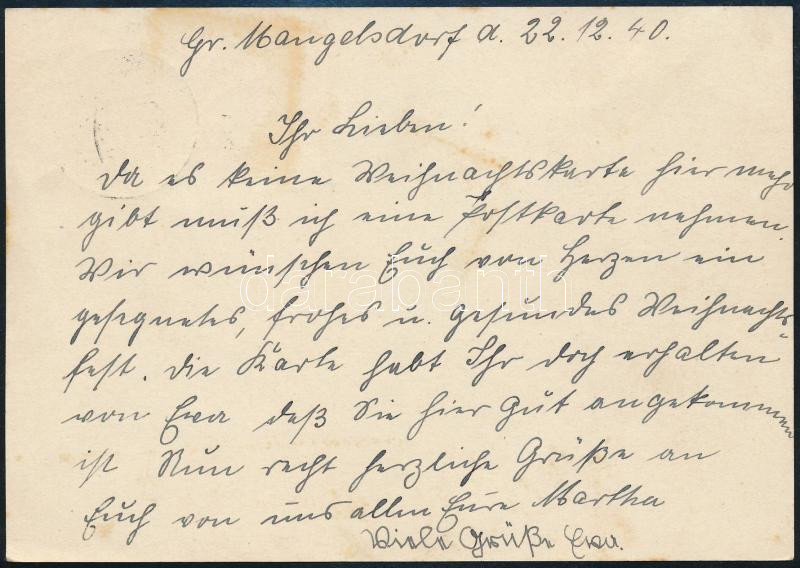 Gr. Mangelsdorf d. 22.12.40.
Ihr Lieben!
Da es keine Weihnachtskarte hier mehr
gibt muß ich eine Postkarte nehmen.
Wir wünschen Euch von Herzen ein
gesegnetes, frohes u. gesundes Weihnachts-
fest. Die Karte habt Ihr doch erhalten
von Ewa daß Sie hier gut angekommen
ist Nun recht herzliche Grüße an
Euch von uns allen Eure Martha
Viele Grüße Ewa.
darabanth